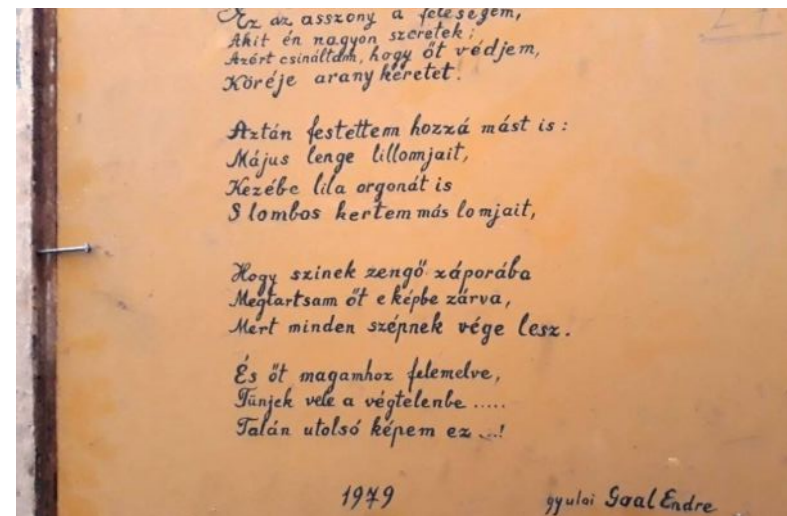 Ez az asszony a feleségem,
Akit én nagyon szeretek;
Azért csináltam, hogy őt védjem,
Köréje arany keretet.
Aztán festettem hozzá mást is:
Május lenge lillomjait,
Kezébe lila orgonát is
S lombos kertem más lomjait,
Hogy szinek zengő záporába
Megtartsam őt e képbe zárva,
Mert minden szépnek vége lesz.
És őt magamhoz felemelve,
Tünjek vele a végtelenbe .....
Talán utolsó képem ez ...!
1979
gyulai Gaal Endre